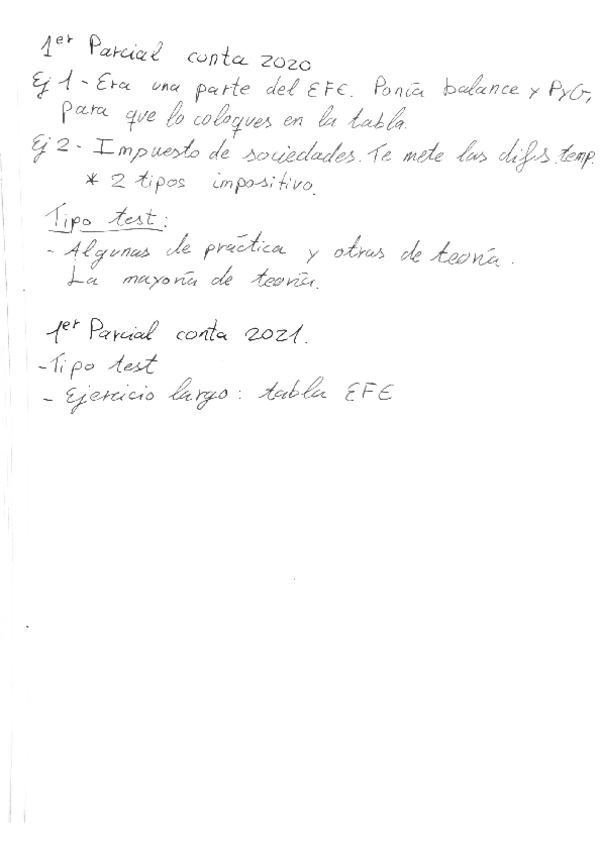 1er Parcial conta 2020
Ej 1 - Era una parte del EFE. Ponía balance y PyG,
para que lo coloques en la tabla.
Ej 2 - Impuesto de sociedades. Te mete las difs. temp.
* 2 tipos impositivo.
Tipo test:
- Algunas de práctica y otras de teoría.
La mayoría de teoría.
1er Parcial conta 2021.
- Tipo test
- Ejercicio largo: tabla EFE